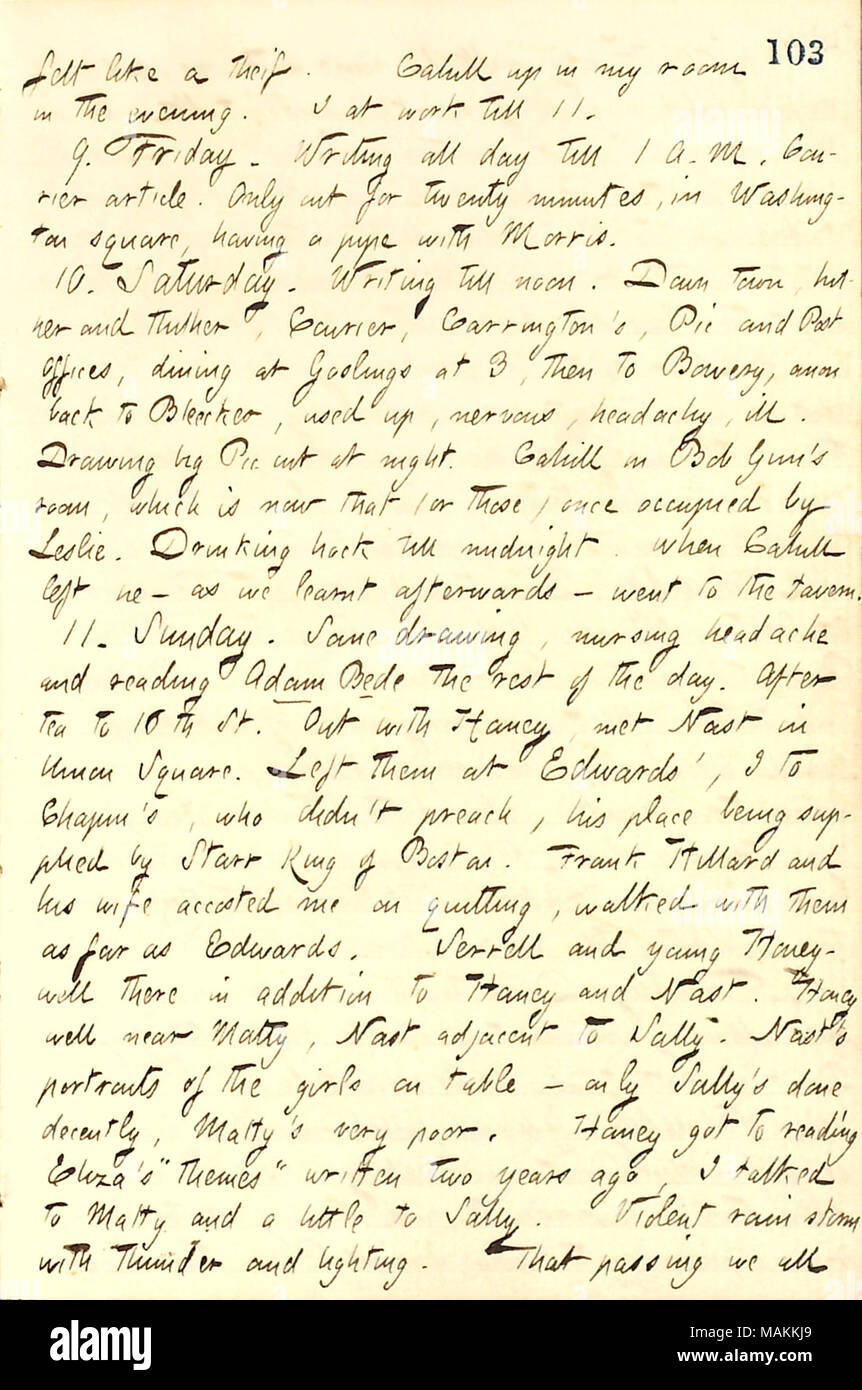 103
felt like a theif. Cahill up in my room
in the evening. I at work till 11.
9. Friday. Writing all day till 1 A.M. Cou-
rier article. Only out for twenty minutes, in Washing-
ton square, having a pipe with Morris.
10. Saturday. Writing till noon. Down town, hit-
her and thither, Courier, Carrington's, Pic and Post
Offices, dining at Goslings at 3, then to Bowery, anon
back to Bleecker, used up, nervous, headachy, ill.
Drawing big Pic cut at night. Cahill in Bob Gun's
room, which is now that (or those) once occupied by
Leslie. Drinking hock till midnight. when Cahill
left ne — as we learnt afterwards — went to the tavern.
11. Sunday. Some drawing, nursing headache
and reading Adam Bede the rest of the day. After
tea to 16th St. Out with Haney, met Nast in
Union Square. Left them at Edwards', I to
Chapin's, who didn't preach, his place being sup-
plied by Starr King of Boston. Frank Hillard and
his wife accosted me on quitting, walked with them
as far as Edwards. Serrell and young Honey-
well there in addition to Haney and Nast. Honey
well near Matty, Nast adjacent to Sally. Nast's
portraits of the girls on table — only Sally's done
decently, Matty's very poor. Haney got to reading
Eliza's "themes" written two years ago, I talked
to Matty and a little to Sally. Violent rain storm
with thunder and lighting. That passing we all
alamy
Image ID: MAKKJ9
www.alamy.com